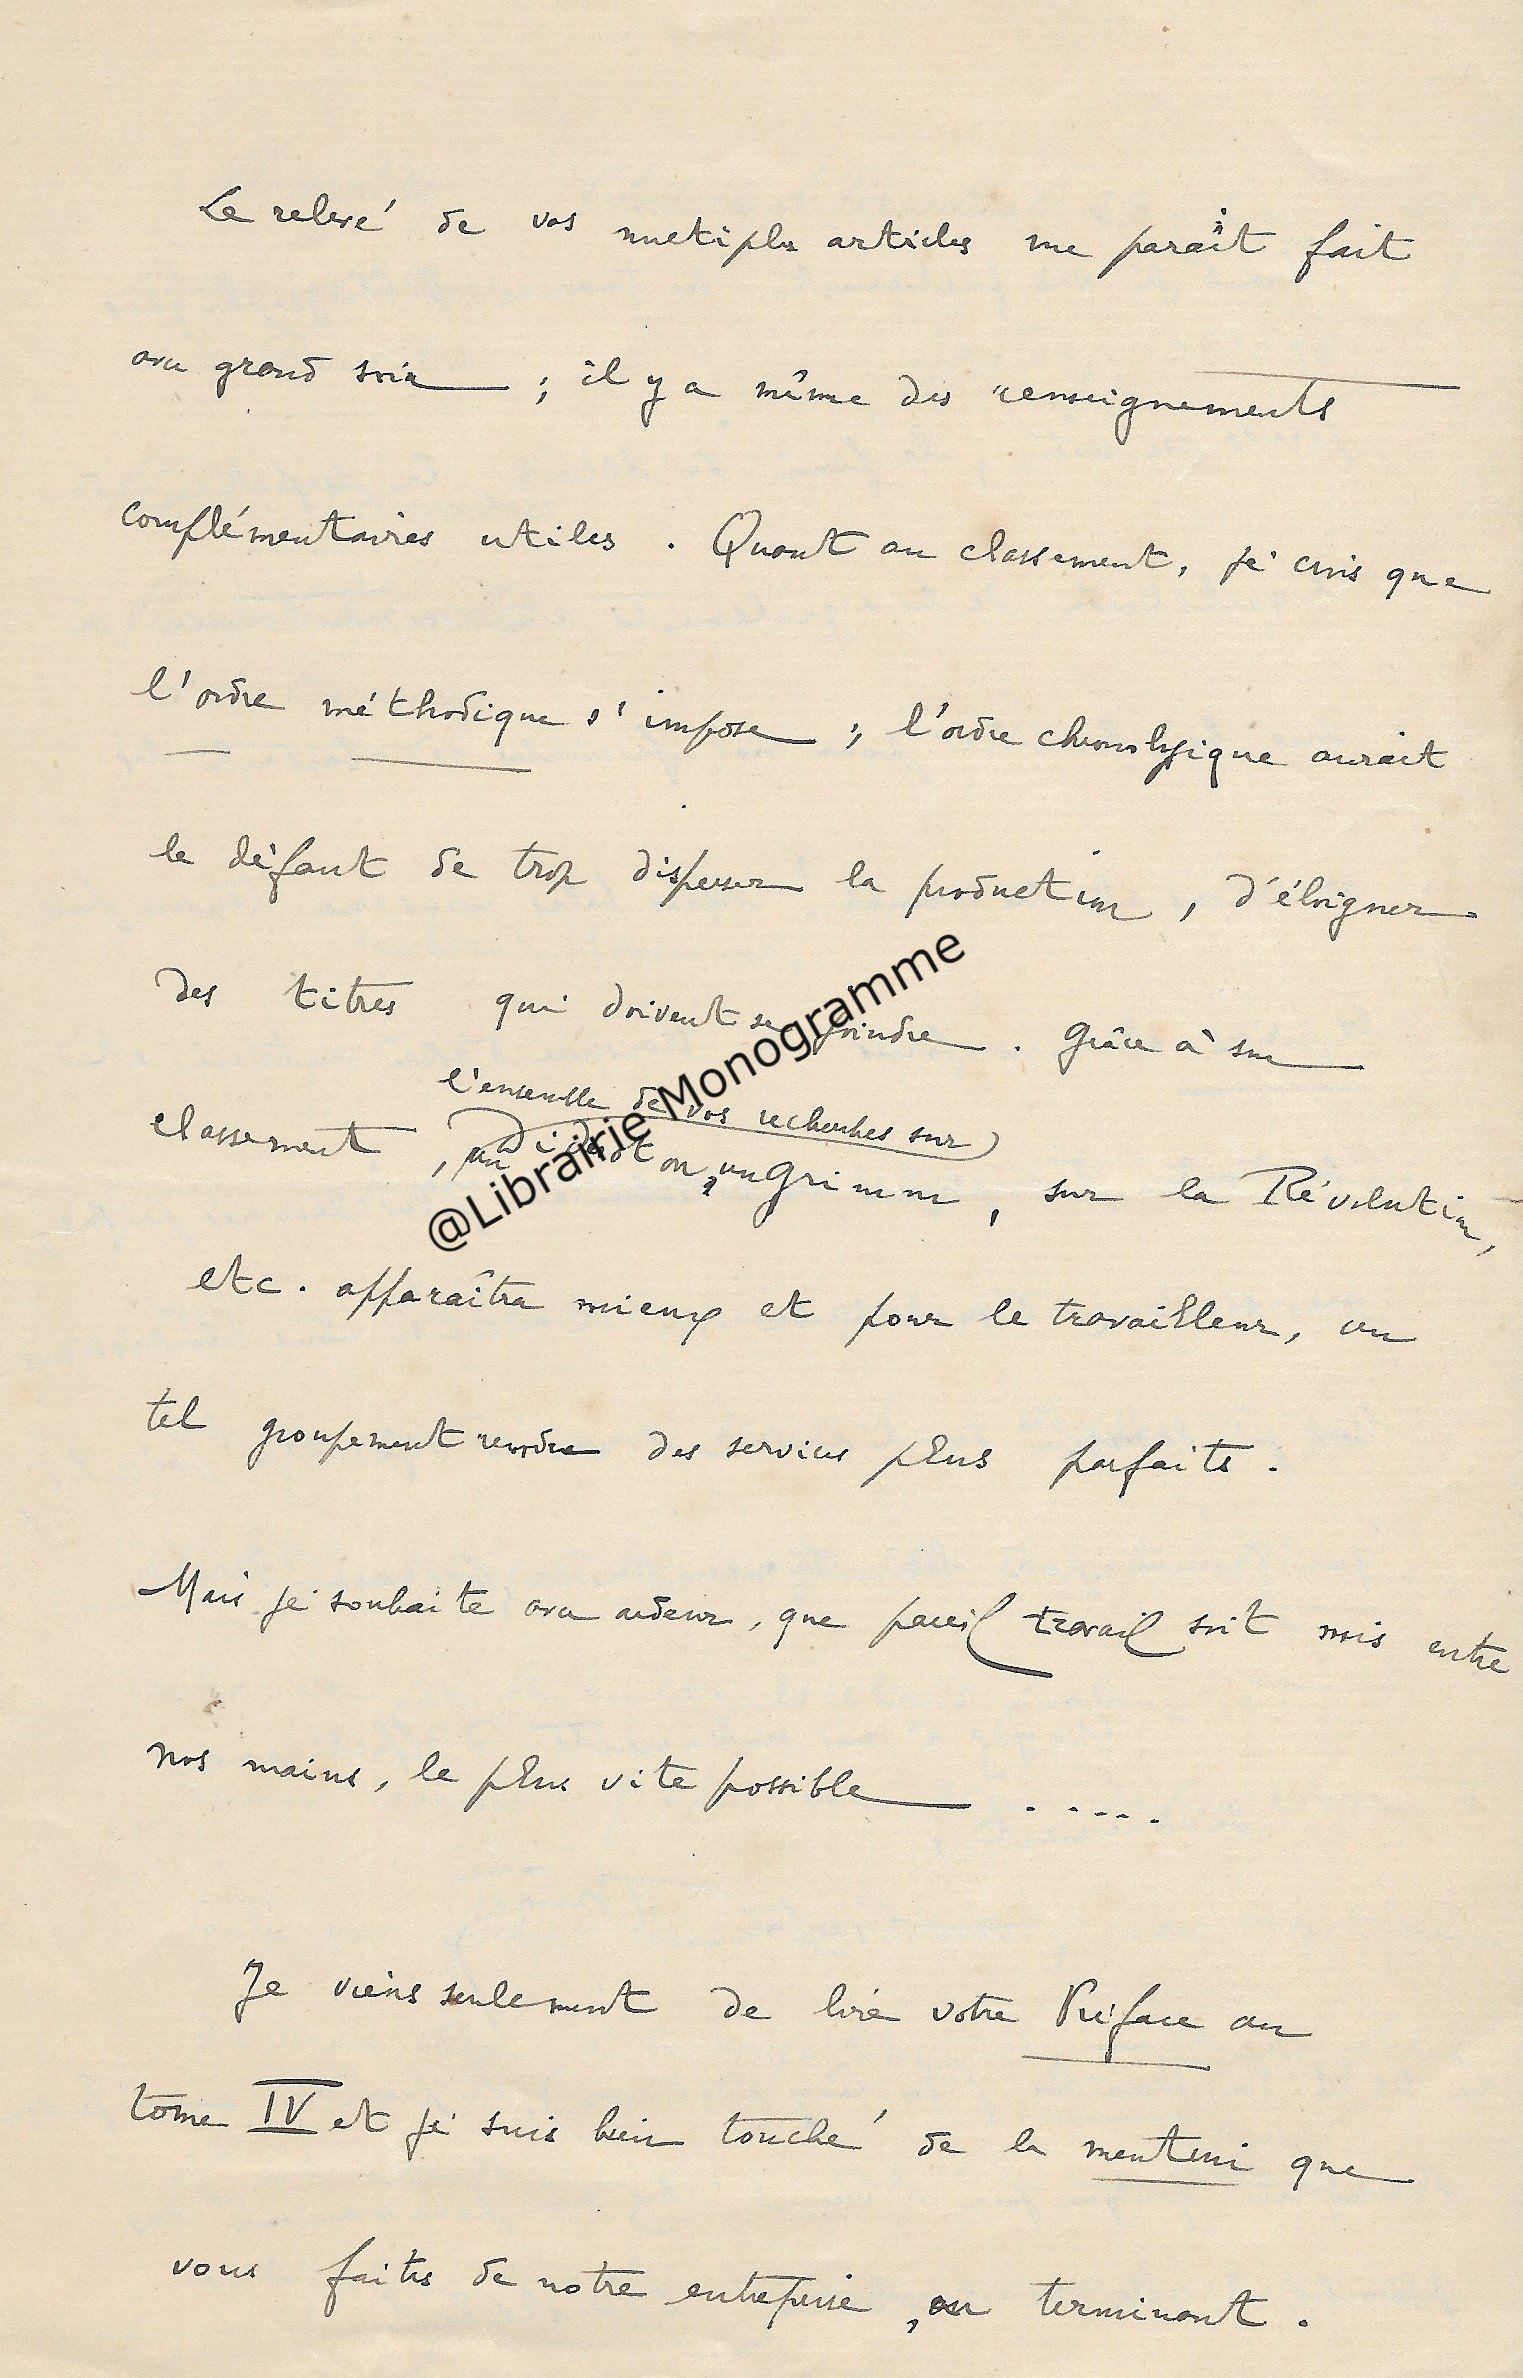 Le relevé de vos multiples articles me paraît fait
avec grand soin ; il y a même des renseignements
complémentaires utiles. Quant au classement, je crois que
l'ordre méthodique s'impose ; l'ordre chronologique aurait
le défaut de trop disperser la production, d'éloigner
des titres qui doivent se joindre. Grâce à son
l'ensemble de vos recherches sur
classement, un Diderot ou un Grimm, sur la Révolution,
etc. apparaîtra mieux et pour le travailleur, un
tel groupement rendra des services plus parfaits.
Mais je souhaite avec ardeur, que pareil travail soit mis entre
nos mains, le plus vite possible .....
Je viens seulement de lire votre Préface au
tome IV et je suis bien touché de la mention que
vous faites de notre entreprise, en terminant.
@Librairie Monogramme